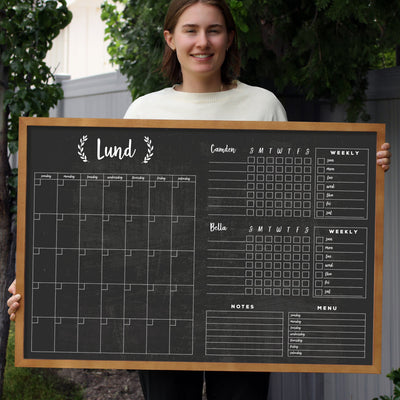 Lund
sunday monday tuesday wednesday thursday friday saturday
Camden S M T W T F S
WEEKLY
sun
mon
tue
wed
thu
fri
sat
Bella S M T W T F S
WEEKLY
sun
mon
tue
wed
thu
fri
sat
NOTES
MENU
sunday
monday
tuesday
wednesday
thursday
friday
saturday